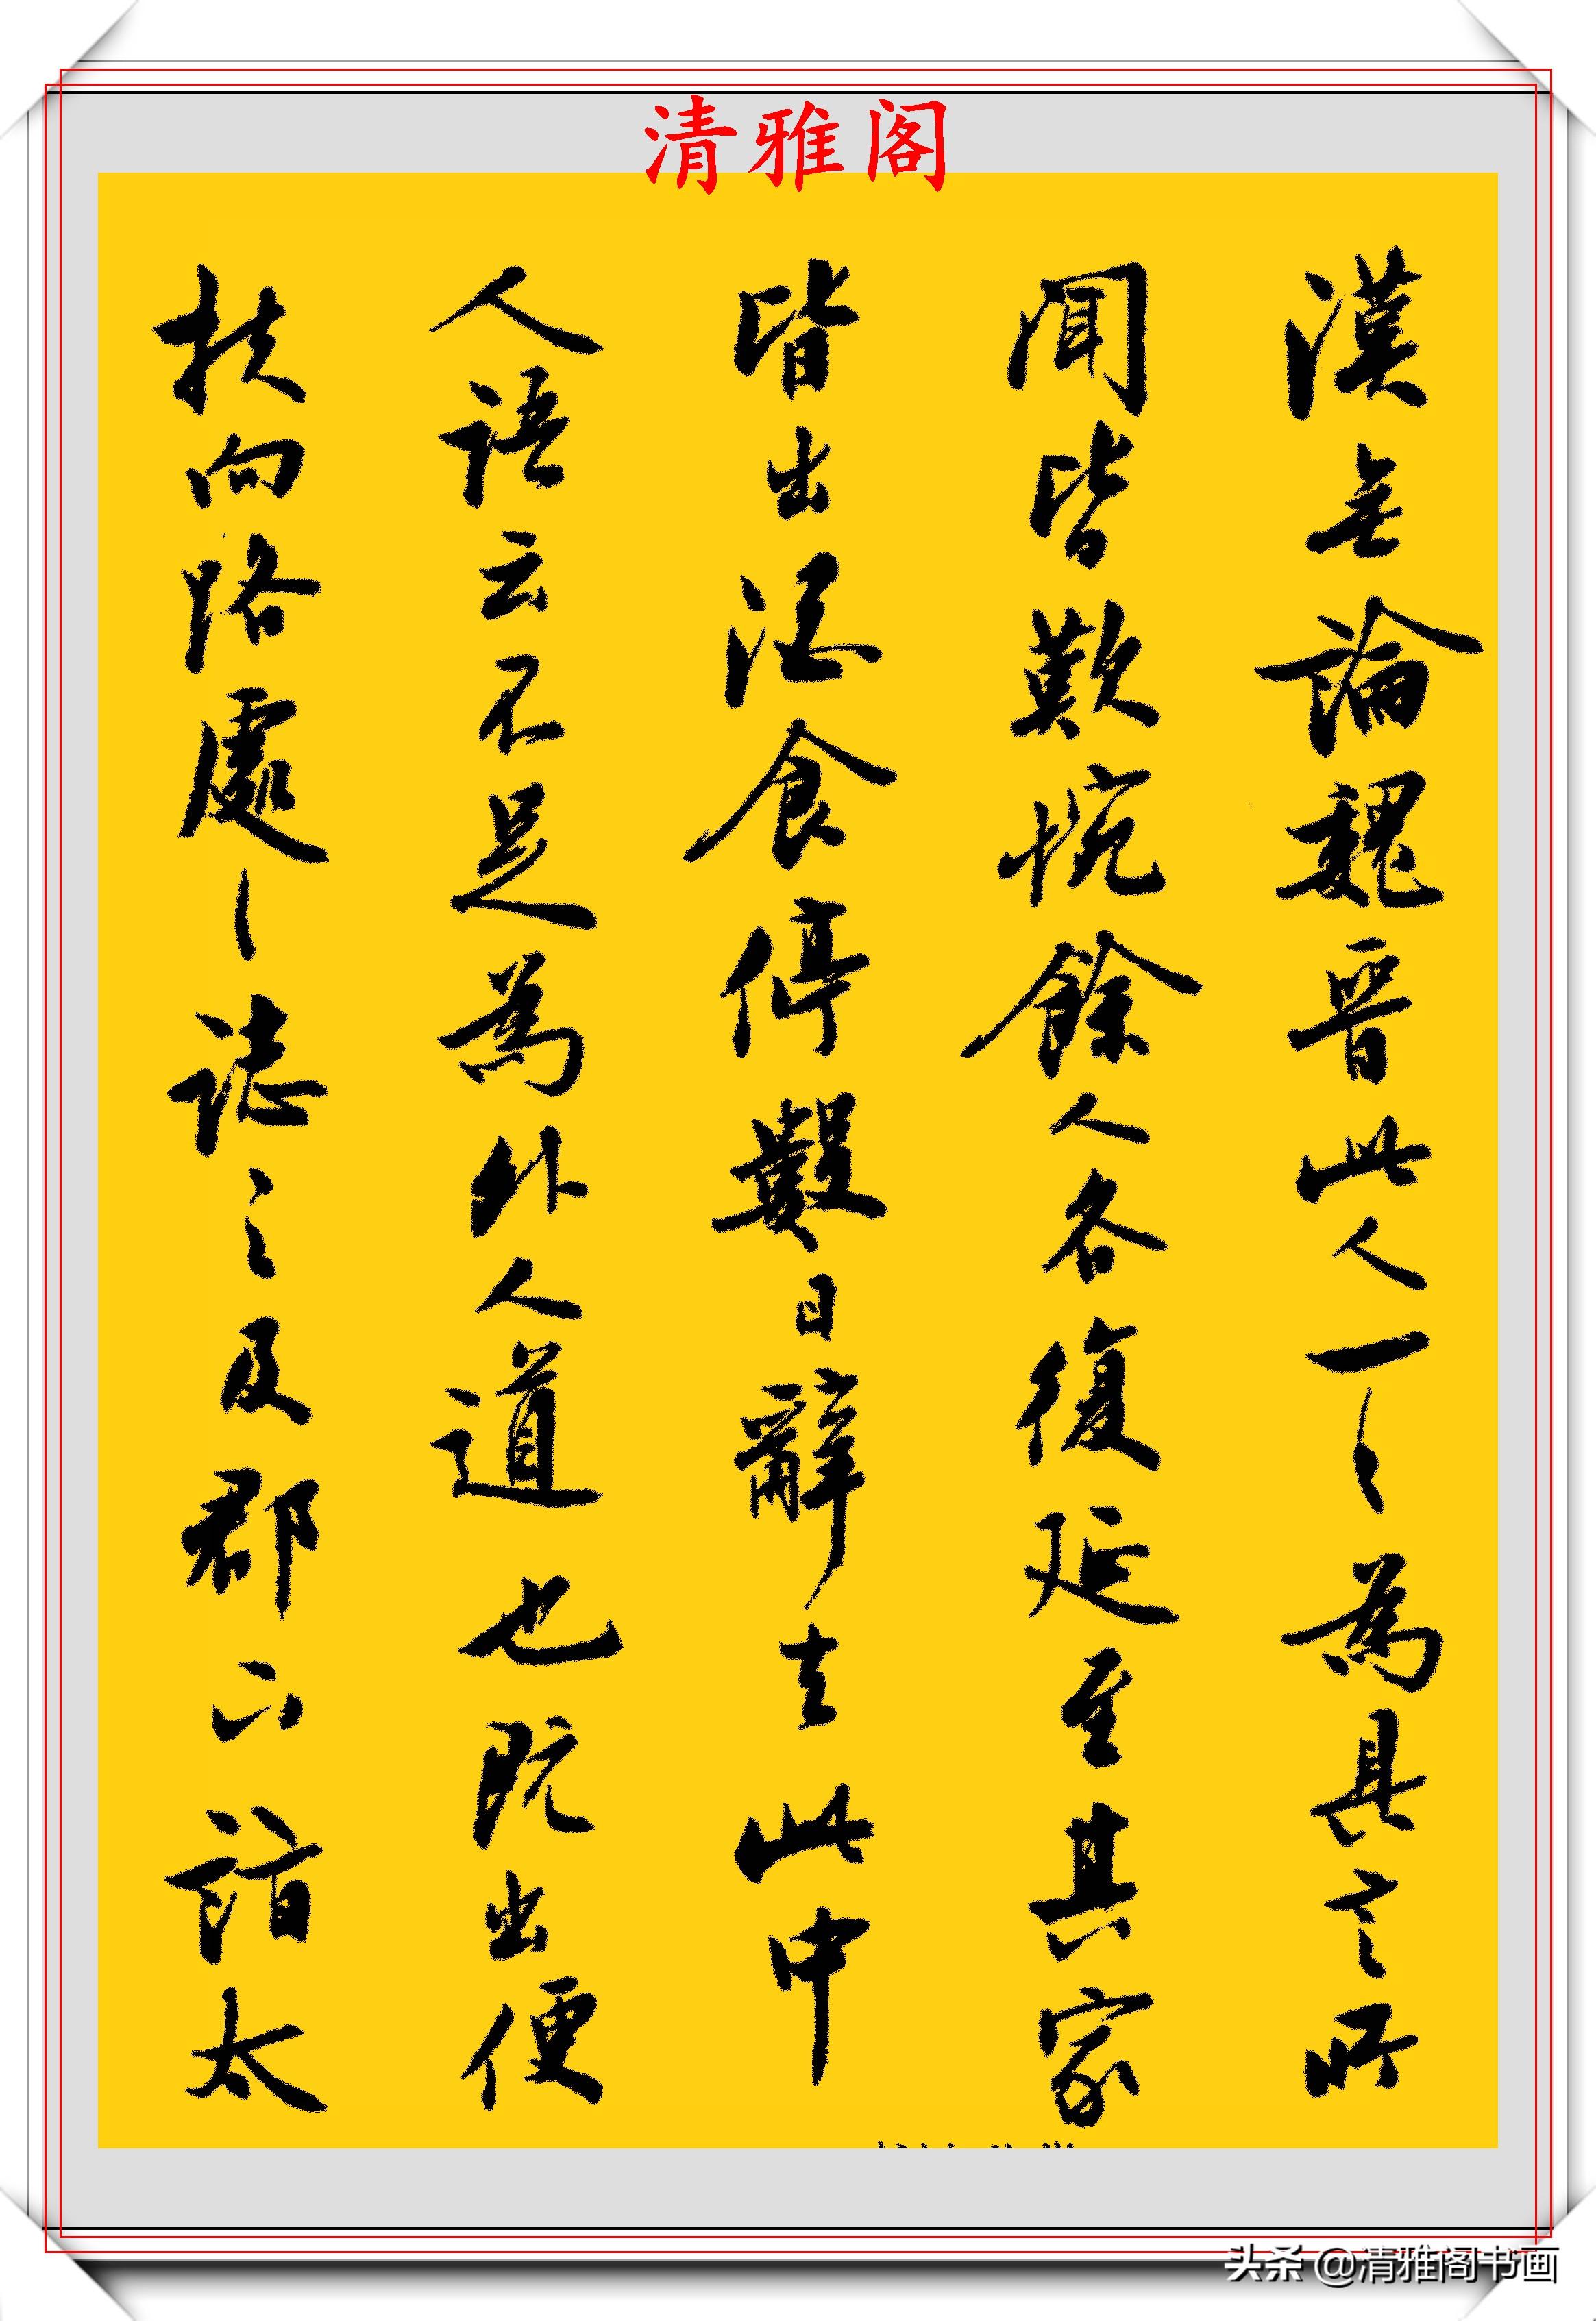 清雅阁
漢無論魏晋此人一〻為具言所
聞皆歎惋餘人各復延至其家
皆出酒食停數日辭去此中
人語云不足為外人道也既出便
扶向路處〻誌之及郡下詣太
头条 @清雅阁书画